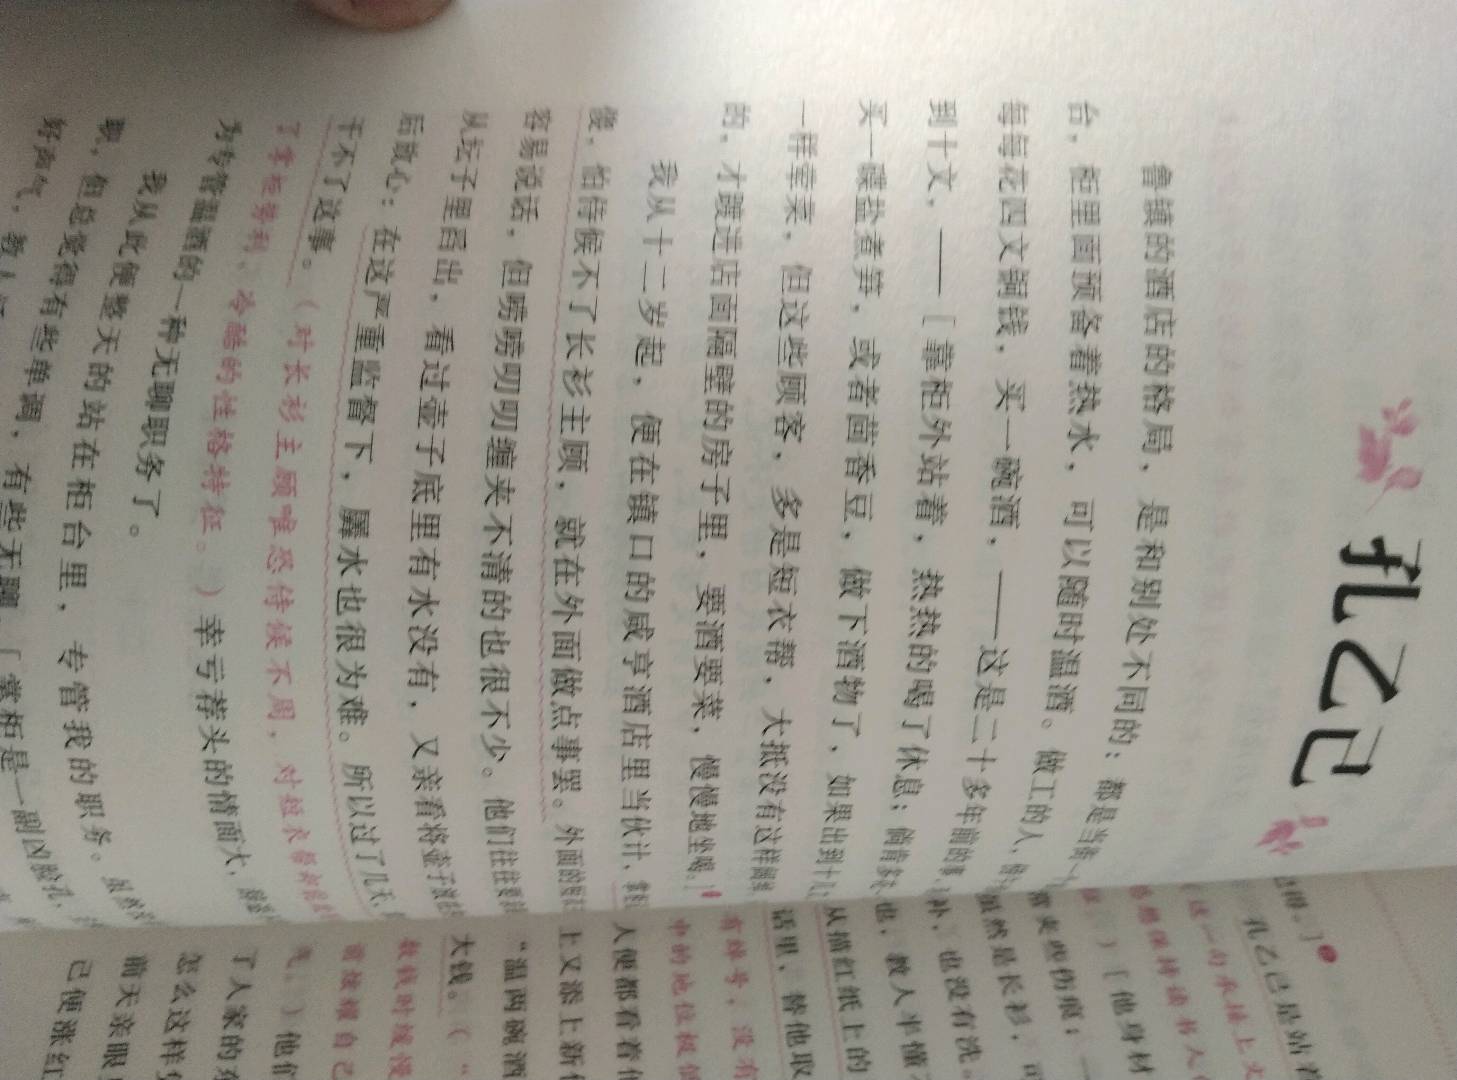 孔乙己
鲁镇的酒店的格局，是和别处不同的：都是当街一
台，柜里面预备着热水，可以随时温酒。做工的人，
每每花四文铜钱，买一碗酒，——这是二十多年前的事，
到十文，——［靠柜外站着，热热的喝了休息；倘肯多
买一碟盐煮笋，或者茴香豆，做下酒物了，如果出到十几
一样荤菜，但这些顾客，多是短衣帮，大抵没有这样阔绰
的，才踱进店面隔壁的房子里，要酒要菜，慢慢地坐喝。］
我从十二岁起，便在镇口的咸亨酒店里当伙计，掌柜
傻，怕侍候不了长衫主顾，就在外面做点事罢。外面的短衣
容易说话，但唠唠叨叨缠夹不清的也很不少。他们往往要
从坛子里舀出，看过壶子底里有水没有，又亲看将壶子放
后放心：在这严重监督下，羼水也很为难。所以过了几天，
干不了这事。（对长衫主顾唯恐侍候不周，对短衣帮
了掌柜势利、冷酷的性格特征。）幸亏荐头的情面大，
为专管温酒的一种无聊职务了。
我从此便整天的站在柜台里，专管我的职务。虽然
职，但总觉得有些单调，有些无聊。［掌柜是一副凶脸孔，
好声气，教人
孔乙己是站着
这一句承接上文
）［他身材
常夹些伤痕；
虽然是长衫，可
补，也没有洗。
也，教人半懂
从描红纸上的
话里，替他取
有绰号，没有
中的地位极低
人便都看着他
上又添上新
“温两碗酒
大钱。（“
）他们
了人家的东
怎么这样
前天亲眼
己便涨红